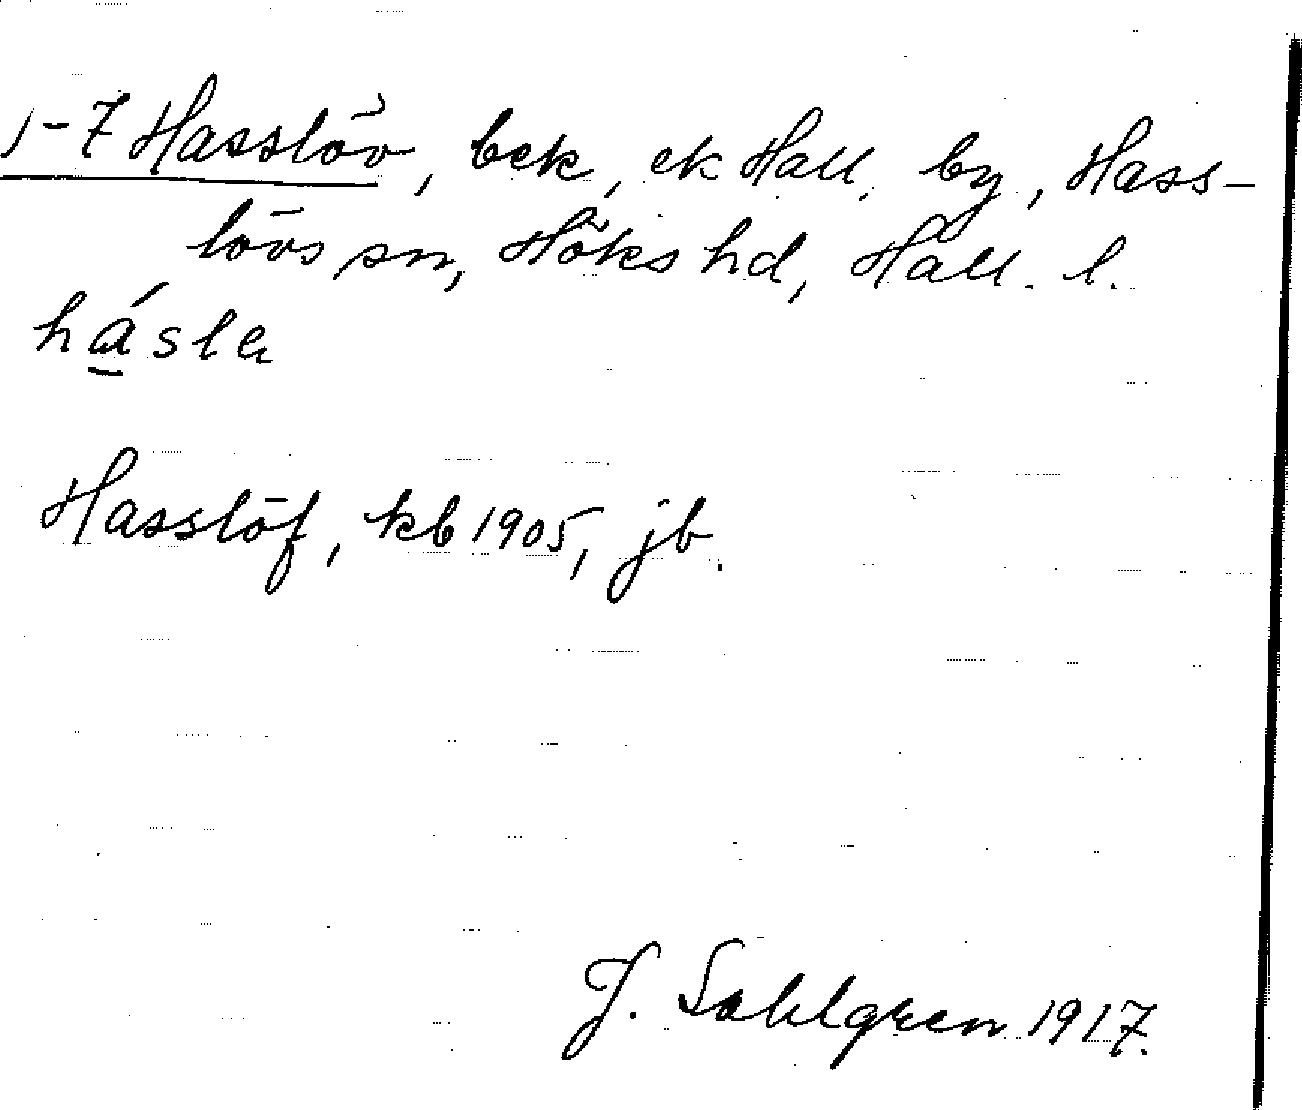 1-7 Hasslöv, bek, ek Hall. by, Hass-
lövs sn, Höks hd, Hall. l.
hásla
Hasslöf, kb 1905, jb.
J. Sahlgren 1917.